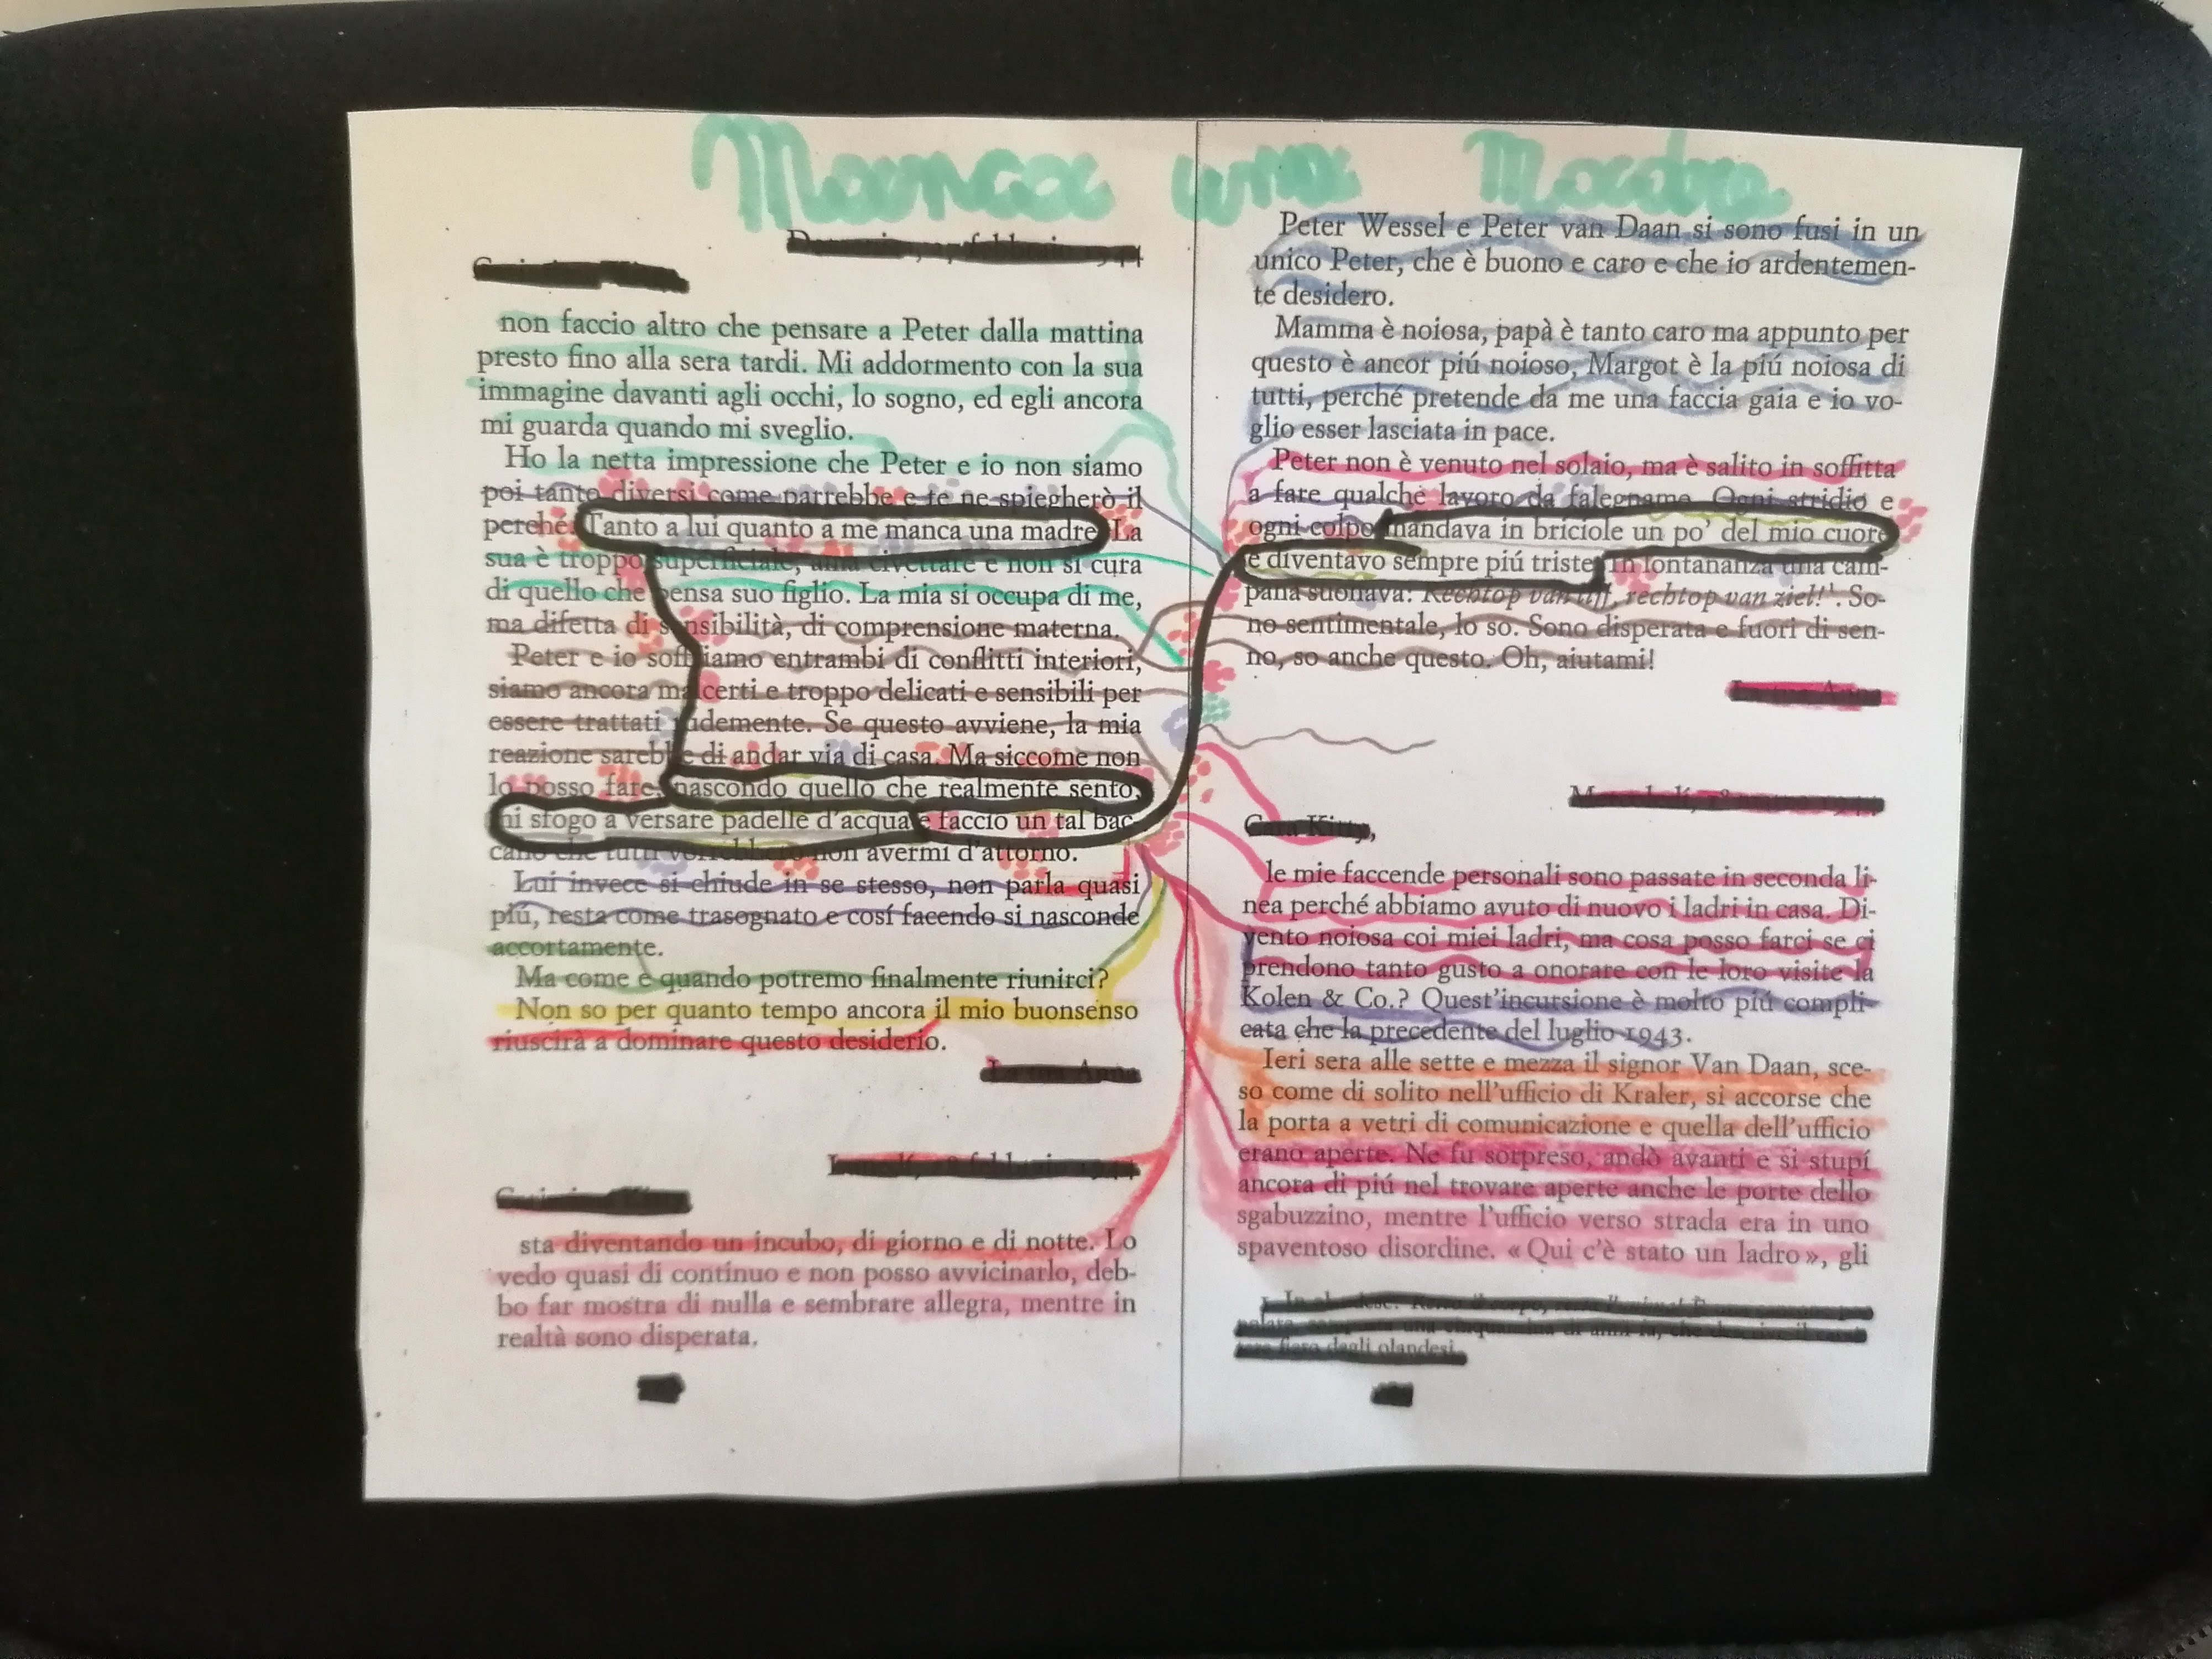 Manca una Madre
non faccio altro che pensare a Peter dalla mattina
presto fino alla sera tardi. Mi addormento con la sua
immagine davanti agli occhi, lo sogno, ed egli ancora
mi guarda quando mi sveglio.
Ho la netta impressione che Peter e io non siamo
poi tanto diversi come parrebbe e te ne spiegherò il
perché. Tanto a lui quanto a me manca una madre. La
sua è troppo superficiale, ama civettare e non si cura
di quello che pensa suo figlio. La mia si occupa di me,
ma difetta di sensibilità, di comprensione materna.
Peter e io soffriamo entrambi di conflitti interiori,
siamo ancora malcerti e troppo delicati e sensibili per
essere trattati rudemente. Se questo avviene, la mia
reazione sarebbe di andar via di casa. Ma siccome non
lo posso fare, nascondo quello che realmente sento,
mi sfogo a versare padelle d'acqua e faccio un tal bac-
cano che tutti vorrebbero non avermi d'attorno.
Lui invece si chiude in se stesso, non parla quasi
piú, resta come trasognato e cosí facendo si nasconde
accortamente.
Ma come e quando potremo finalmente riunirci?
Non so per quanto tempo ancora il mio buonsenso
riuscirà a dominare questo desiderio.
sta diventando un incubo, di giorno e di notte. Lo
vedo quasi di continuo e non posso avvicinarlo, deb-
bo far mostra di nulla e sembrare allegra, mentre in
realtà sono disperata.
Peter Wessel e Peter van Daan si sono fusi in un
unico Peter, che è buono e caro e che io ardentemen-
te desidero.
Mamma è noiosa, papà è tanto caro ma appunto per
questo è ancor piú noioso, Margot è la piú noiosa di
tutti, perché pretende da me una faccia gaia e io vo-
glio esser lasciata in pace.
Peter non è venuto nel solaio, ma è salito in soffitta
a fare qualche lavoro da falegname. Ogni stridio e
ogni colpo mandava in briciole un po' del mio cuore
e diventavo sempre piú triste. In lontananza una cam-
pana suonava: Rechtop van lijf, rechtop van ziel!¹. So-
no sentimentale, lo so. Sono disperata e fuori di sen-
no, so anche questo. Oh, aiutami!
Cara Kitty,
le mie faccende personali sono passate in seconda li-
nea perché abbiamo avuto di nuovo i ladri in casa. Di-
vento noiosa coi miei ladri, ma cosa posso farci se ci
prendono tanto gusto a onorare con le loro visite la
Kolen & Co.? Quest'incursione è molto piú compli-
cata che la precedente del luglio 1943.
Ieri sera alle sette e mezza il signor Van Daan, sce-
so come di solito nell'ufficio di Kraler, si accorse che
la porta a vetri di comunicazione e quella dell'ufficio
erano aperte. Ne fu sorpreso, andò avanti e si stupí
ancora di piú nel trovare aperte anche le porte dello
sgabuzzino, mentre l'ufficio verso strada era in uno
spaventoso disordine. « Qui c'è stato un ladro », gli
degli olandesi.